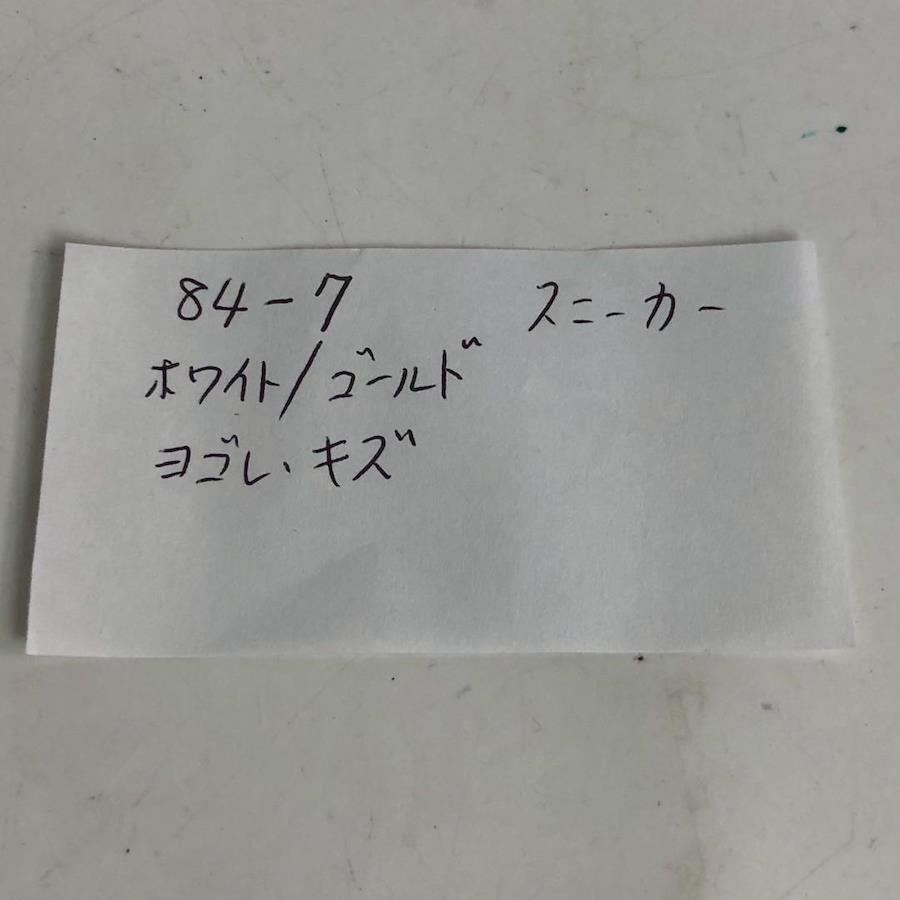 84-7 スニーカー
ホワイト/ゴールド
ヨゴレ、キズ